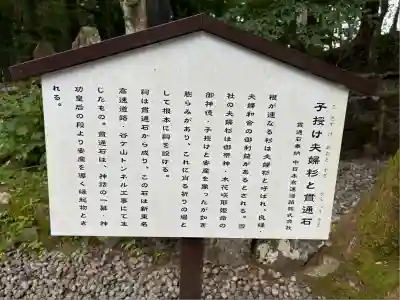 子授け夫婦杉と貫通石
貫通石奉納 中日本高速道路株式会社
根が連なる杉は夫婦杉と呼ばれ、良縁・
夫婦和合の御利益があるとされる。当
社の夫婦杉は御祭神・木花咲耶姫命の
御神徳・子授けと安産を象ったが如き
膨らみがあり、これに肖る祈りの場と
して根本に祠を設ける。
祠は貫通石から成り、この石は新東名
高速道路・谷ケ山トンネル工事にて生
じたもの。貫通石は、神話の一幕・神
功皇后の段より安産を導く縁起物とさ
れる。